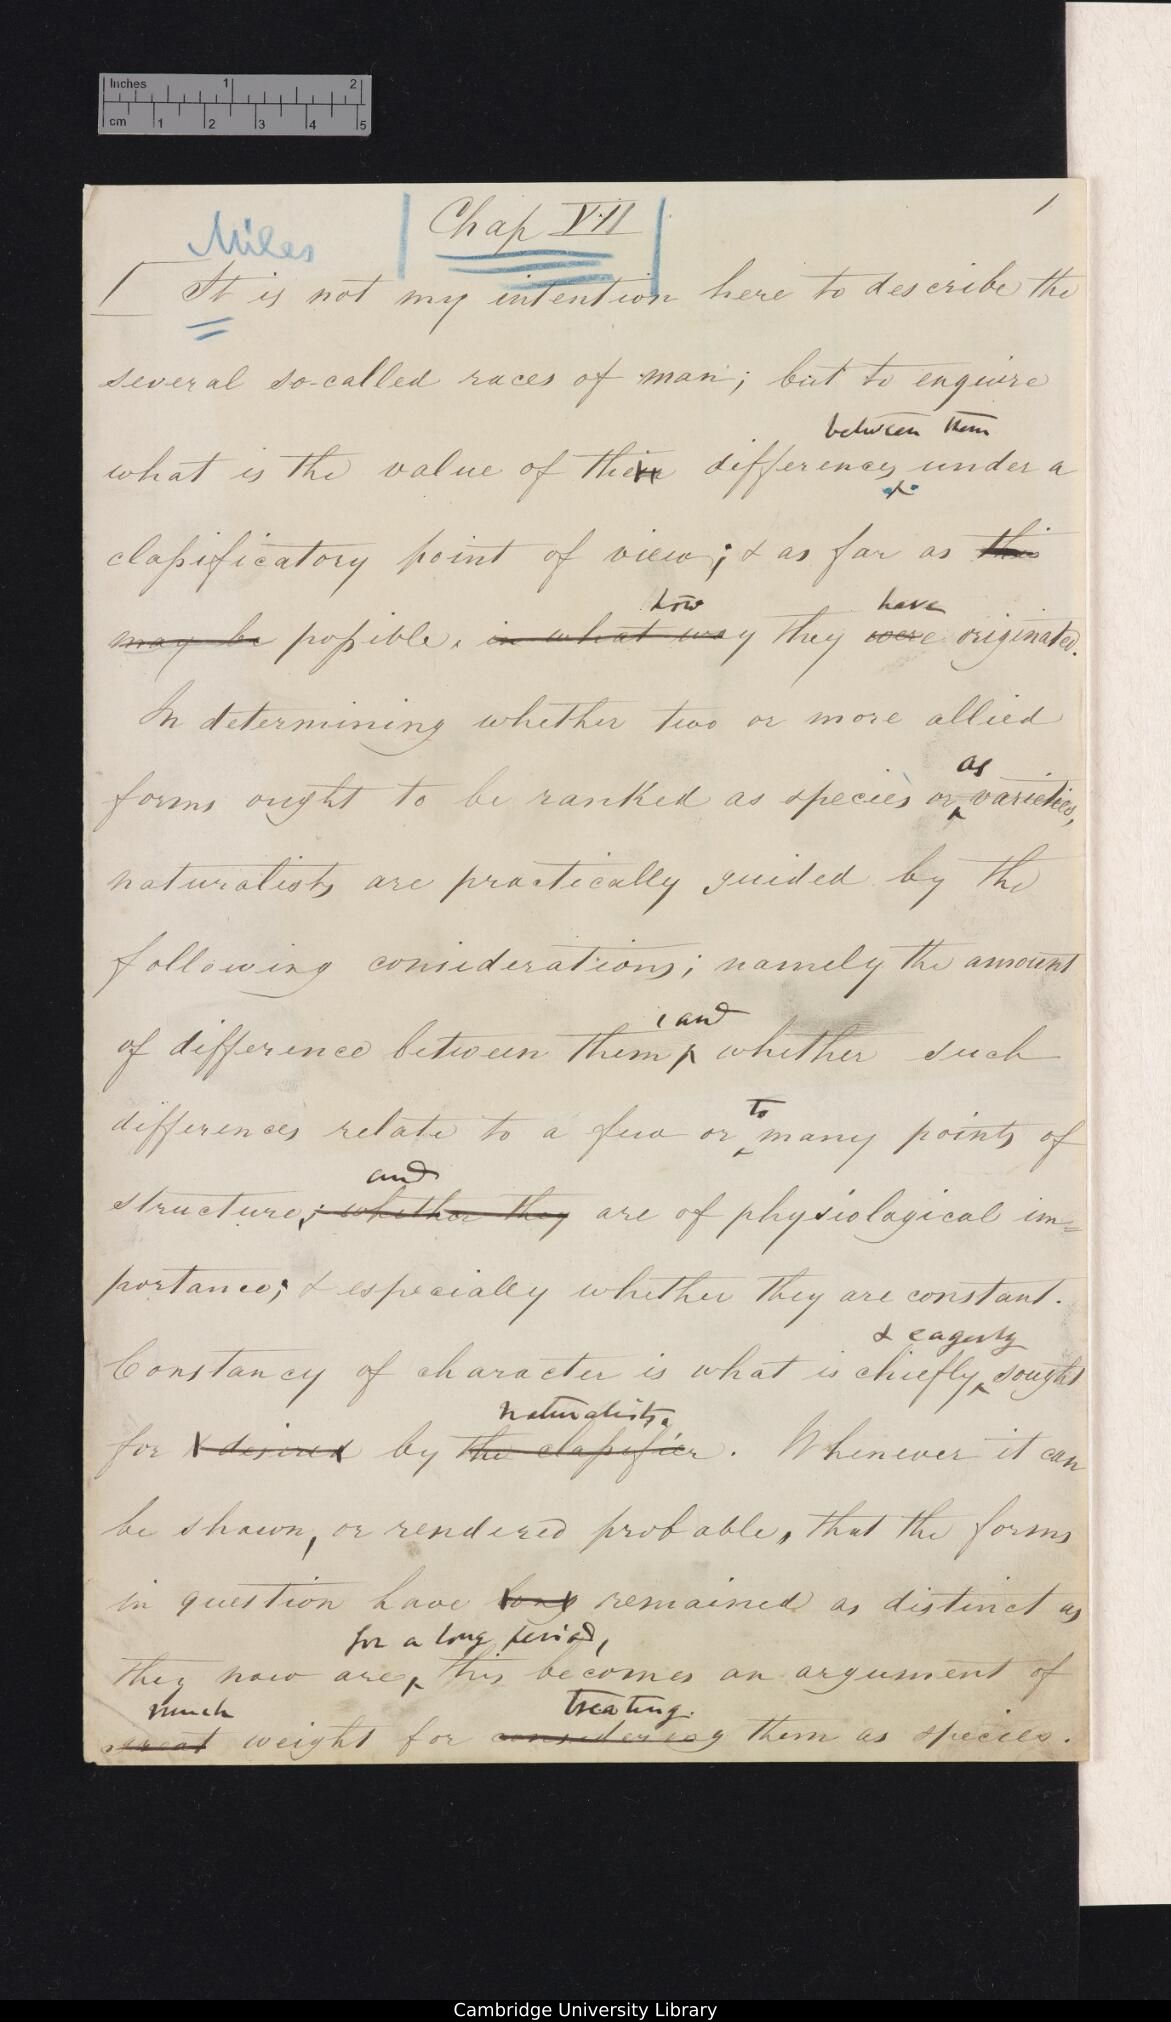 Inches 1 2
cm 1 2 3 4 5
1
Miles
Chap VII
It is not my intention here to describe the
several so-called races of man; but to enquire
between them
what is the value of their differences under a
classificatory point of view; & as far as this
how have
may be possible, in what way they were originated.
In determining whether two or more allied
as
forms ought to be ranked as species or varieties,
naturalists are practically guided by the
following considerations; namely the amount
, and
of difference between them whether such
to
differences relate to a few or many points of
and
structure; whether they are of physiological im=
portance; & especially whether they are constant.
& eagerly
Constancy of character is what is chiefly sought
naturalists.
for & desired by the classifier. Whenever it can
be shown, or rendered probable, that the forms
in question have long remained as distinct as
for a long period,
they now are, this becomes an argument of
much treating
great weight for considering them as species.
Cambridge University Library